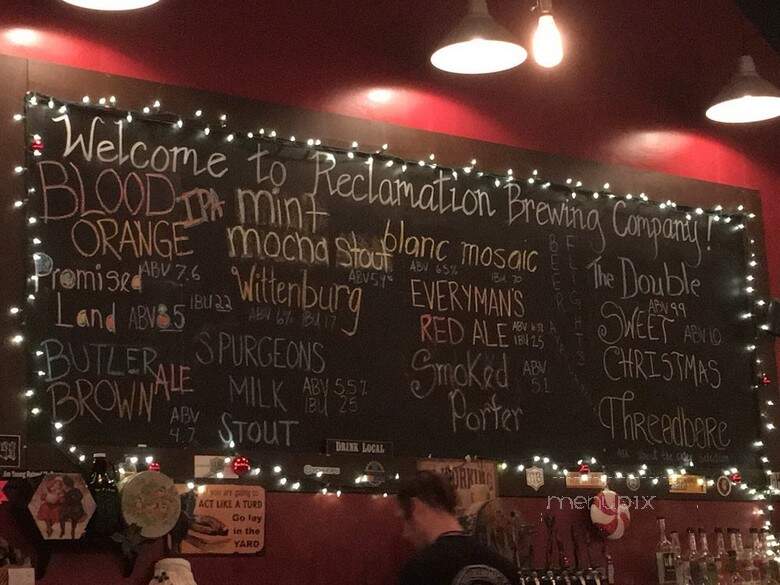 Welcome to Reclamation Brewing Company!
BLOOD
ORANGE
IPA
ABV 7.6
Promised
Land ABV 8.5
IBU 22
BUTLER
BROWN ALE
ABV
4.7
mint
mocha stout
ABV 5.4%
Wittenburg
ABV 6% IBU 17
SPURGEONS
MILK
STOUT
ABV 5.5%
IBU 25
blanc mosaic
ABV 6.5%
IBU 70
EVERYMAN'S
RED ALE
IBU 25
Smoked
Porter
ABV
5.1
BEER
FLIGHTS
The Double
ABV 9.9
SWEET
CHRISTMAS
ABV 10
Threadbare
Ask about the cider selection
DRINK LOCAL
you are going to
ACT LIKE A TURD
Go lay
in the
YARD
WORKING
menupix